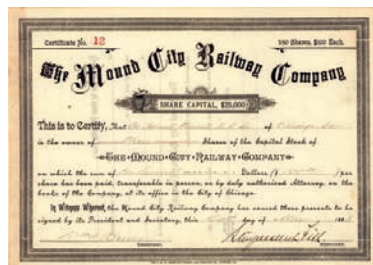 Certificate No. 12 250 Shares, $100 Each.
The Mound City Railway Company
SHARE CAPITAL, $25,000
This is to Certify, That of Chicago
is the owner of Shares of the Capital Stock of
THE MOUND CITY RAILWAY COMPANY
on which the sum of Dollars ($ ) per
share has been paid, transferable in person, or by duly authorized Attorney, on the
books of the Company, at its office in the City of Chicago.
In Witness Whereof, the Mound City Railway Company has caused these presents to be
signed by its President and Secretary, this day of 188